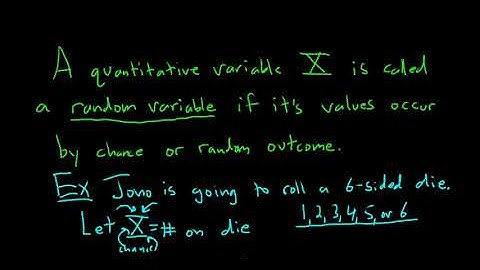 A quantitative variable X is called
a random variable if it's values occur
by chance or random outcome.
Ex Jono is going to roll a 6-sided die.
Let X = # on die 1, 2, 3, 4, 5, or 6
chance